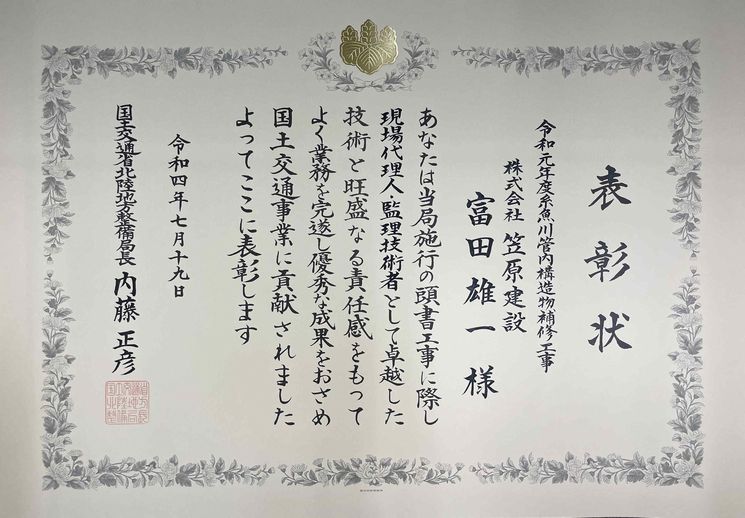 表彰状
令和元年度糸魚川管内構造物補修工事
株式会社 笠原建設
富田雄一 様
あなたは当局施行の頭書工事に際し
現場代理人・監理技術者として卓越した
技術と旺盛なる責任感をもって
よく業務を完遂し優秀な成果をおさめ
国土交通事業に貢献されました
よってここに表彰します
令和四年七月十九日
国土交通省北陸地方整備局長 内藤正彦